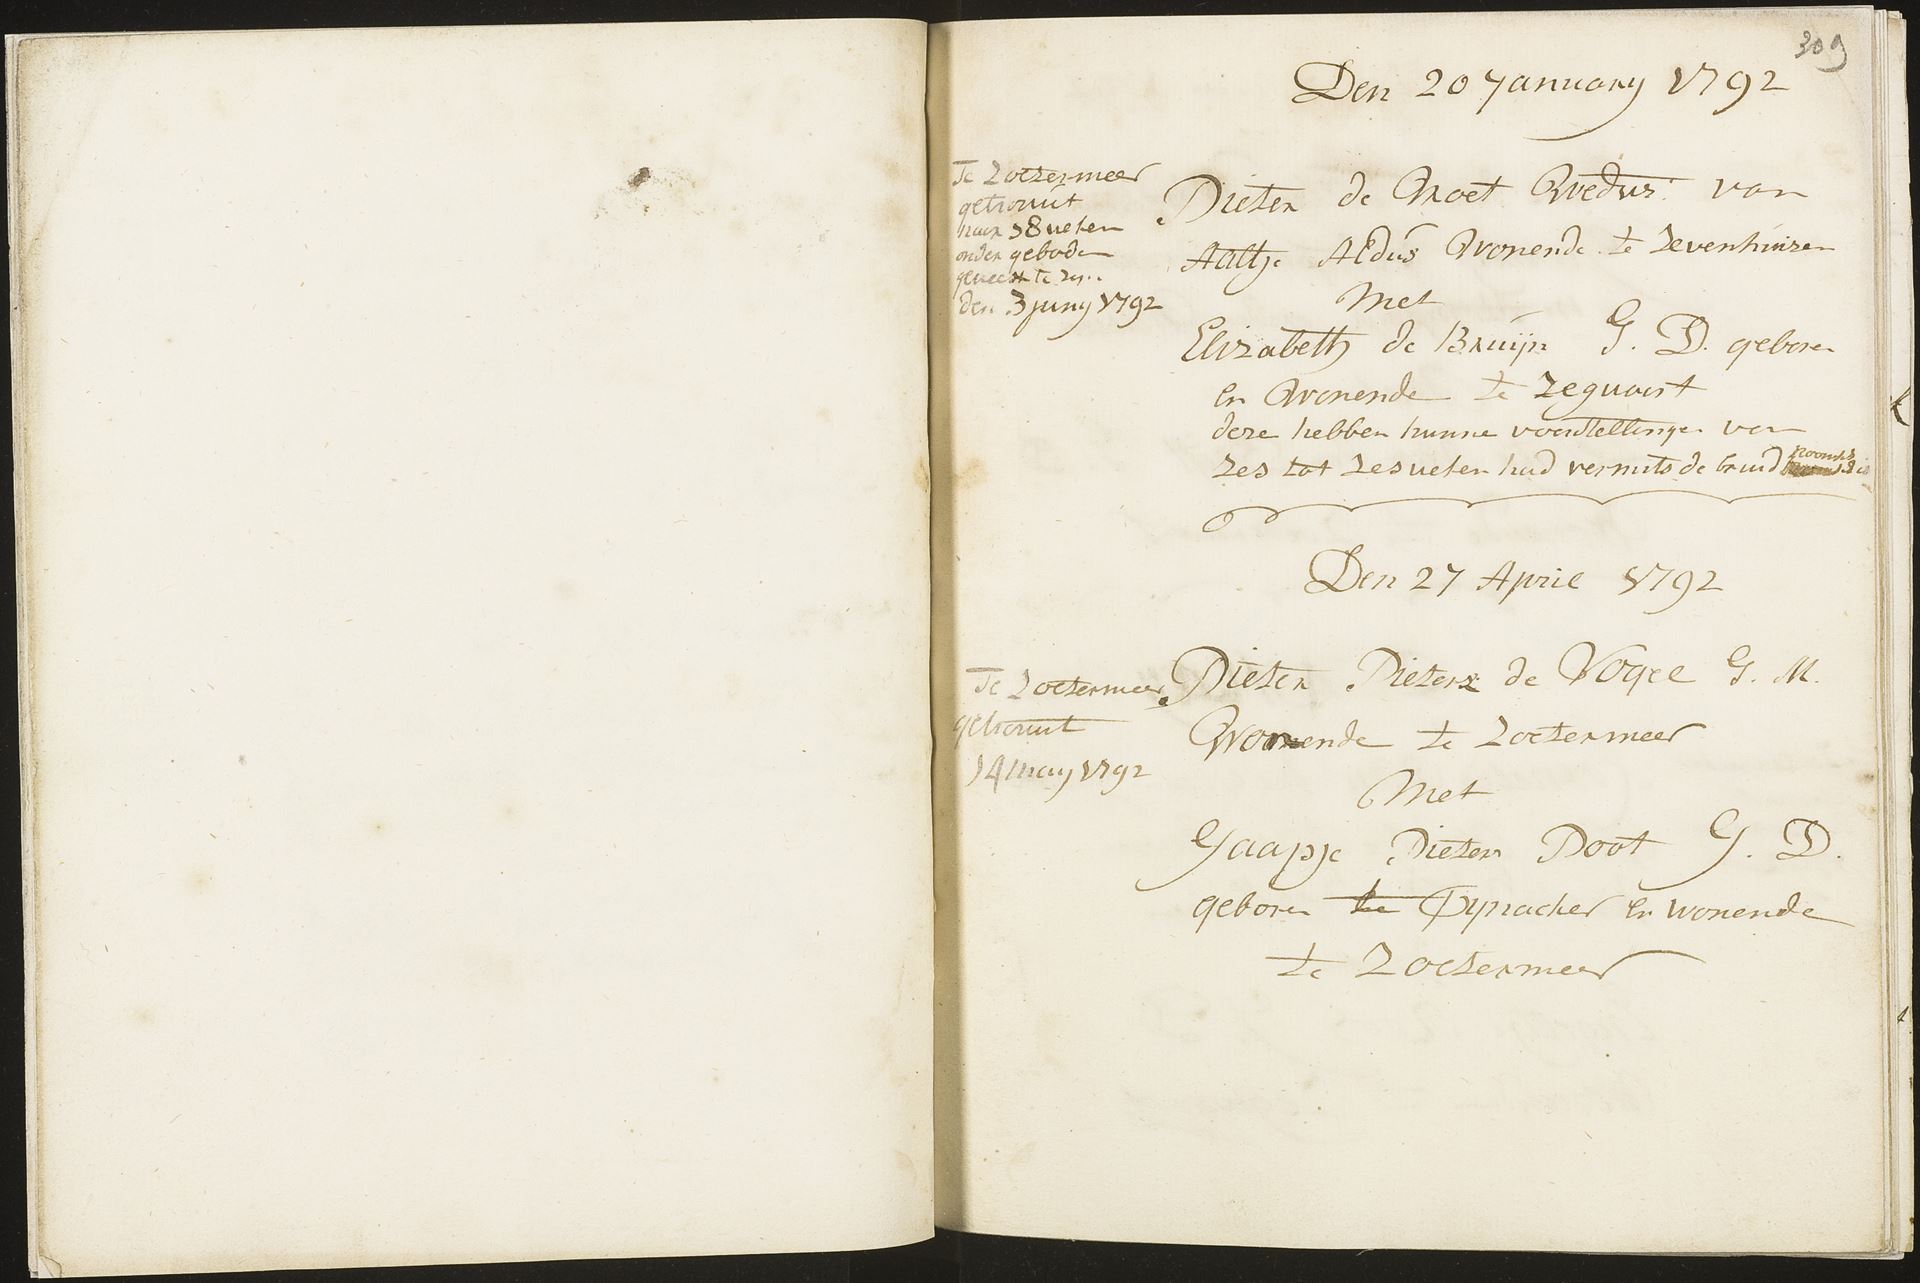 309
Den 20 January 1792
Te Zoetermeer
getrouut
naar 18 ueken
onder gebode
geueest te zyn
den 3 juny 1792
Pieter de Moet Wedur: van
Aaltje Aldus Wonende te Zevenhuizen
Met
Elizabeth de Bruijn G. D. geboren
en Wonende te Zeguaert
deze hebben hunne voorstellinge van
zes tot zes ueken had vermits de bruid Rooms is
Den 27 April 1792
Te Zoetermeer
getrouut
14 may 1792
Pieter Pieterz de Vogel G. M.
Wonende te Zoetermeer
Met
Jaapje Pieters Poot G. D.
geboren te Pynacker en wonende
te Zoetermeer